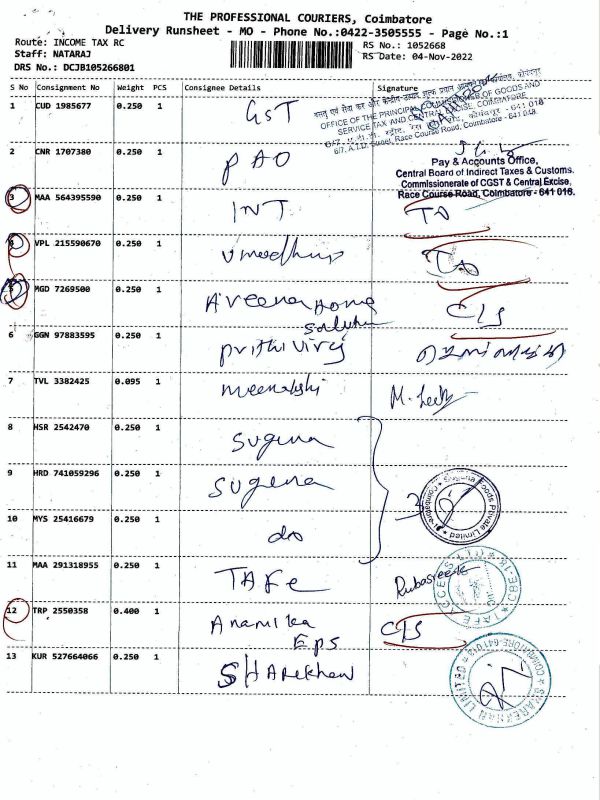 THE PROFESSIONAL COURIERS, Coimbatore
Delivery Runsheet - MO - Phone No.:0422-3505555 - Page No.:1
Route: INCOME TAX RC RS No.: 1052668
Staff: NATARAJ RS Date: 04-Nov-2022
DRS No.: DCJB105266801
S No Consignment No Weight PCS Consignee Details Signature
OFFICE OF THE PRINCIPAL COMMISSIONER OF GOODS AND
SERVICE TAX AND CENTRAL EXCISE, COIMBATORE
6/7, A.T.D. Street, Race Course Road, Coimbatore - 641 018.
1 CUD 1985677 0.250 1 GST
2 CNR 1707380 0.250 1 PAO
Pay & Accounts Office,
Central Board of Indirect Taxes & Customs.
Commissionerate of CGST & Central Excise,
Race Course Road, Coimbatore - 641 018.
3 MAA 564395590 0.250 1 INT TD
4 VPL 215590670 0.250 1 TD
5 MGD 7269500 0.250 1 Aveena Home C/S
6 GGN 97883595 0.250 1 prithiviraj
7 TVL 3382425 0.095 1 meenakshi M.
8 HSR 2542470 0.250 1 sugena
9 HRD 741059296 0.250 1 sugena
Foods Private Limited
Coimbatore
10 MYS 25416679 0.250 1 do
11 MAA 291318955 0.250 1 TAFE
TAFE ACCESS LTD CBE-18
12 TRP 2550358 0.400 1 Anamika C/S
EPS
13 KUR 527664066 0.250 1 SHArekhan
SHAREKHAN LIMITED
COIMBATORE 641 018